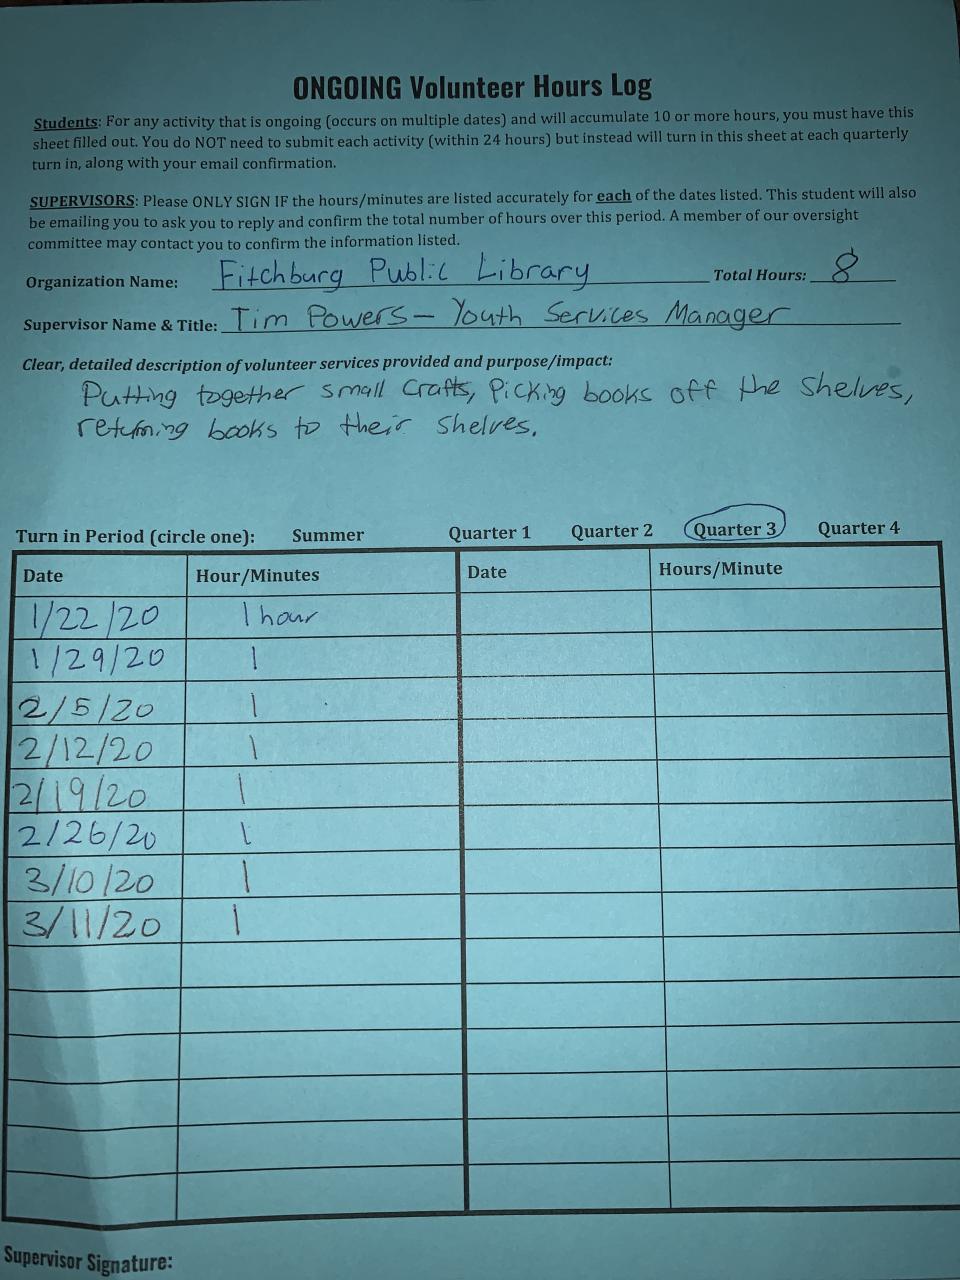 ONGOING Volunteer Hours Log
Students: For any activity that is ongoing (occurs on multiple dates) and will accumulate 10 or more hours, you must have this
sheet filled out. You do NOT need to submit each activity (within 24 hours) but instead will turn in this sheet at each quarterly
turn in, along with your email confirmation.
SUPERVISORS: Please ONLY SIGN IF the hours/minutes are listed accurately for each of the dates listed. This student will also
be emailing you to ask you to reply and confirm the total number of hours over this period. A member of our oversight
committee may contact you to confirm the information listed.
Organization Name: Fitchburg Public Library Total Hours: 8
Supervisor Name & Title: Tim Powers - Youth Services Manager
Clear, detailed description of volunteer services provided and purpose/impact:
Putting together small crafts, Picking books off the shelves,
returning books to their shelves.
Turn in Period (circle one): Summer Quarter 1 Quarter 2 Quarter 3 Quarter 4
Date Hour/Minutes Date Hours/Minute
1/22/20 1 hour
1/29/20 1
2/5/20 1
2/12/20 1
2/19/20 1
2/26/20 1
3/10/20 1
3/11/20 1
Supervisor Signature: